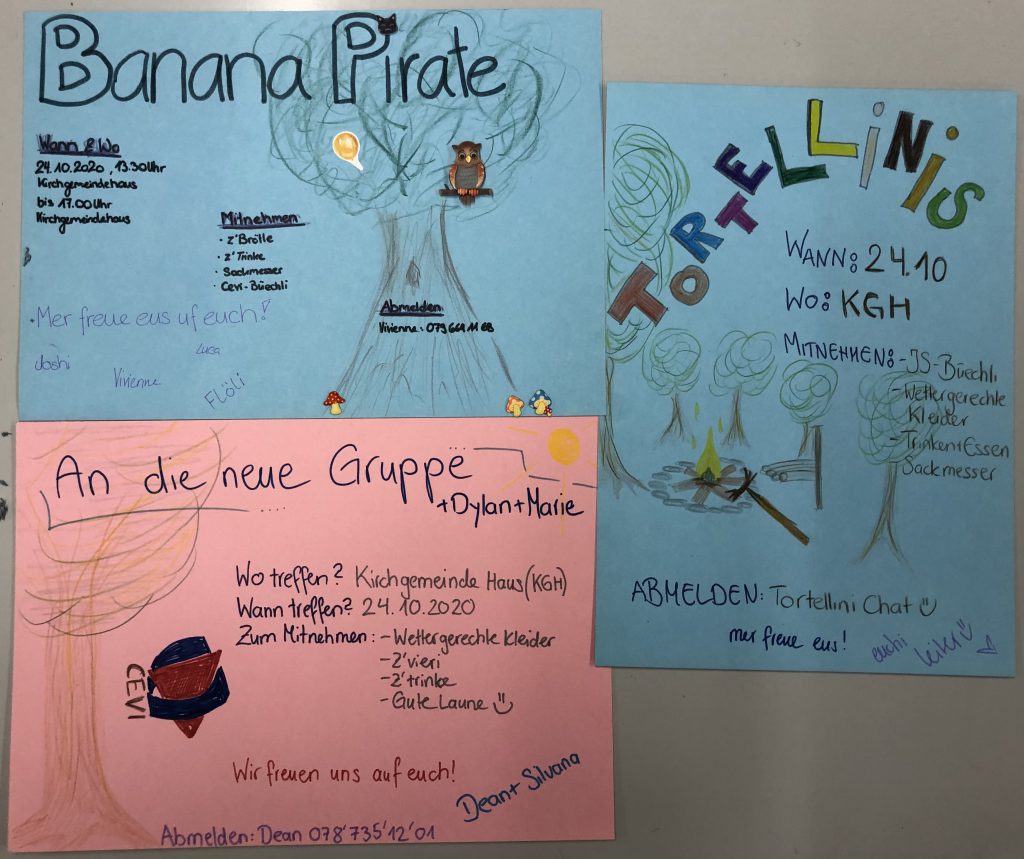 Banana Pirate
Wann & Wo
24.10.2020, 13.30 Uhr
Kirchgemeindehaus
bis 17.00 Uhr
Kirchgemeindehaus
Mitnehmen
· z'Brötle
· z'Trinke
· Sackmesser
· Cevi-Büechli
Abmelden
Vivienne: 079 664 11 68
Mer freue eus uf euch!
Joshi
Luca
Vivienne
Flöli
TORTELLINIS
WANN: 24.10
WO: KGH
MITNEHMEN: - JS-Büechli
- Wettergerechte
Kleider
- Trinken+Essen
- Sackmesser
ABMELDEN: Tortellini Chat
mer freue eus!
euchi
leiti
An die neue Gruppe
+Dylan+Marie
Wo treffen? Kirchgemeinde Haus (KGH)
Wann treffen? 24.10.2020
Zum Mitnehmen: - Wettergerechte Kleider
- Z'vieri
- Z'trinke
- Gute Laune
CEVI
Wir freuen uns auf euch!
Dean + Silvana
Abmelden: Dean 078'735'12'01